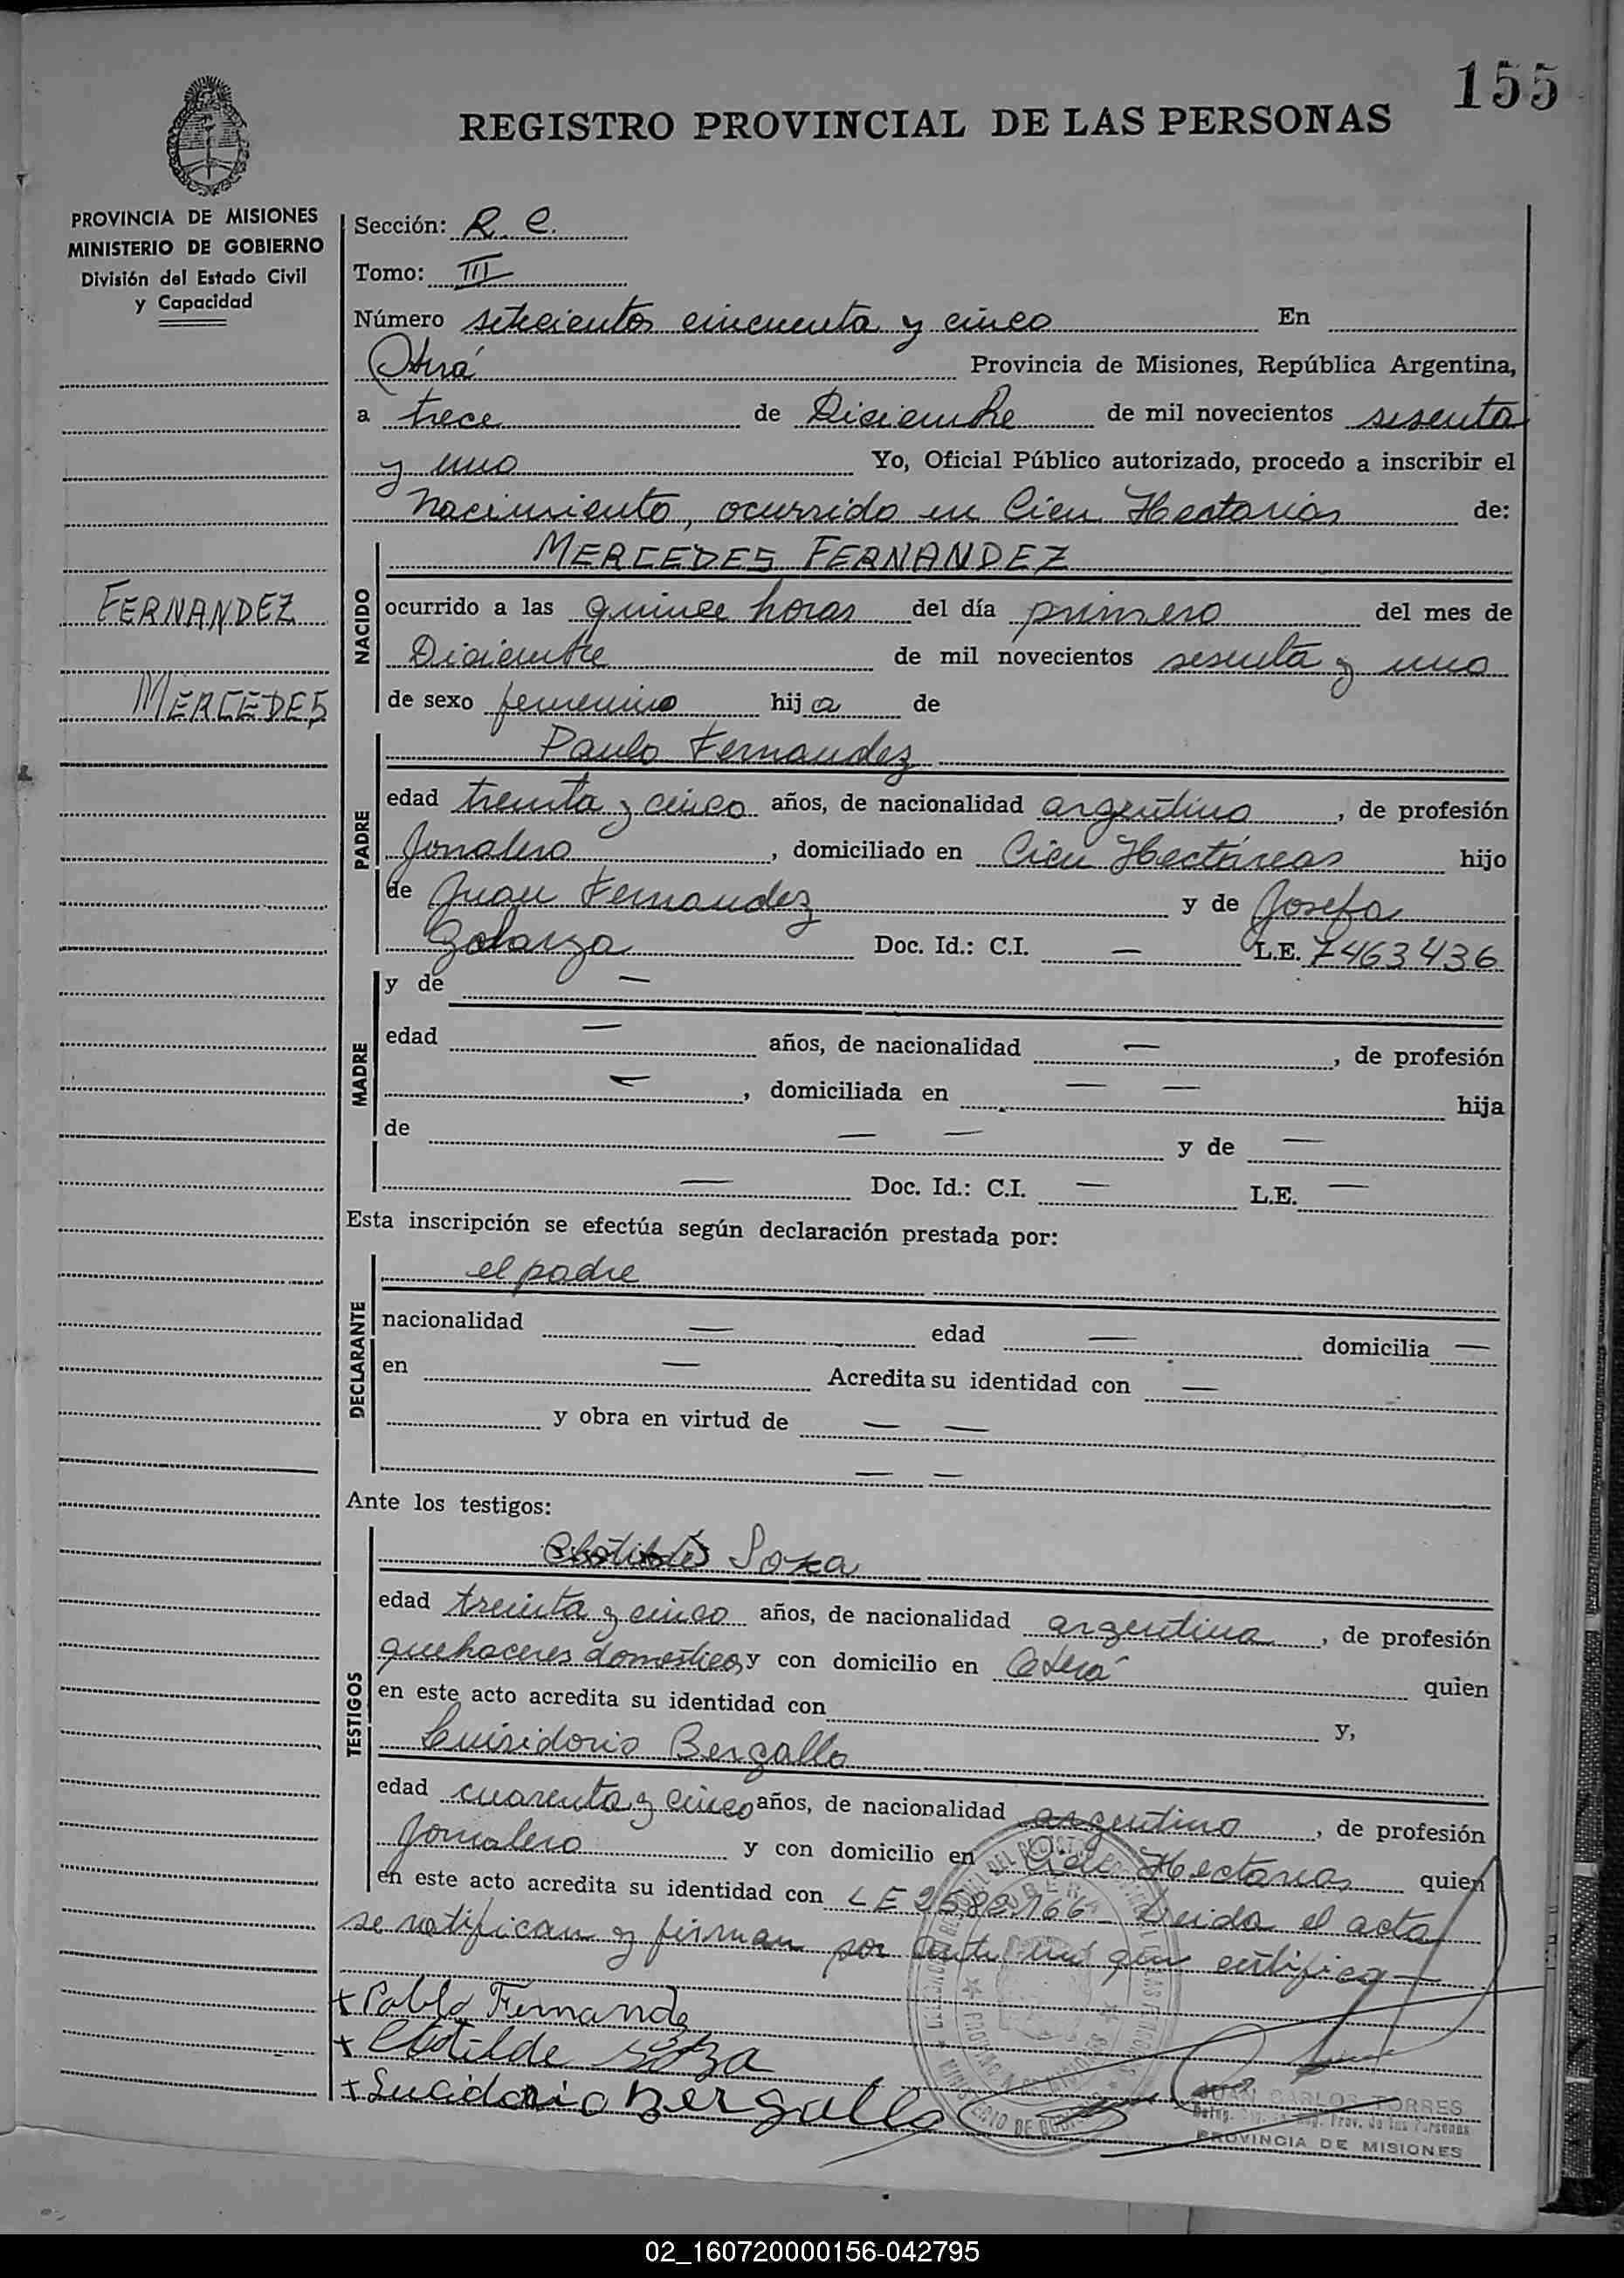 155
REGISTRO PROVINCIAL DE LAS PERSONAS
PROVINCIA DE MISIONES
MINISTERIO DE GOBIERNO
División del Estado Civil
y Capacidad
FERNANDEZ
MERCEDES
Sección: R. C.
Tomo: III
Número setecientos cincuenta y cinco En
Oberá Provincia de Misiones, República Argentina,
a trece de Diciembre de mil novecientos sesenta
y uno Yo, Oficial Público autorizado, procedo a inscribir el
Nacimiento, ocurrido en Cien Hectarias de:
NACIDO
MERCEDES FERNANDEZ
ocurrido a las quince horas del día primero del mes de
Diciembre de mil novecientos sesenta y uno
de sexo femenino hija de
PADRE
Paulo Fernandez
edad treinta y cinco años, de nacionalidad argentino, de profesión
Jornalero, domiciliado en Cien Hectáreas hijo
de Juan Fernandez y de Josefa
Galarza Doc. Id.: C.I. — L.E. 7463436
MADRE
y de —
edad — años, de nacionalidad —, de profesión
—, domiciliada en — — hija
de — — y de —
— Doc. Id.: C.I. — L.E. —
Esta inscripción se efectúa según declaración prestada por:
DECLARANTE
el padre
nacionalidad — edad — domicilia —
en — Acredita su identidad con —
y obra en virtud de — —
— —
Ante los testigos:
TESTIGOS
Soza
edad treinta y cinco años, de nacionalidad argentina, de profesión
quehaceres domesticos y con domicilio en Oberá quien
en este acto acredita su identidad con y,
Luisidorio Bergallo
edad cuarenta y cinco años, de nacionalidad argentino, de profesión
Jornalero y con domicilio en Cien Hectarias quien
en este acto acredita su identidad con LE Leida el acta
se ratifican y firman por ante mi que certifico —
x Pablo Fernandz
x Clotilde Soza
x Lucidorio Bergallo
JUAN CARLOS TORRES
Prov. de las Personas
PROVINCIA DE MISIONES
02_160720000156-042795